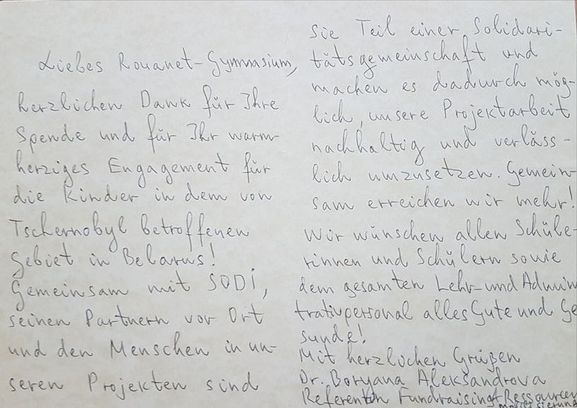 Liebes Rouanet-Gymnasium,
herzlichen Dank für Ihre
Spende und für Ihr warm-
herziges Engagement für
die Kinder in dem von
Tschernobyl betroffenen
Gebiet in Belarus!
Gemeinsam mit SODI,
seinen Partnern vor Ort
und den Menschen in un-
seren Projekten sind
Sie Teil einer Solidari-
tätsgemeinschaft und
machen es dadurch mög-
lich, unsere Projektarbeit
nachhaltig und verläss-
lich umzusetzen. Gemein-
sam erreichen wir mehr!
Wir wünschen allen Schüle-
rinnen und Schülern sowie
dem gesamten Lehr- und Admin
trativpersonal alles Gute und Ge
sunde!
Mit herzlichen Grüßen
Dr. Boryana Aleksandrova
Referentin Fundraising/Ressourcen